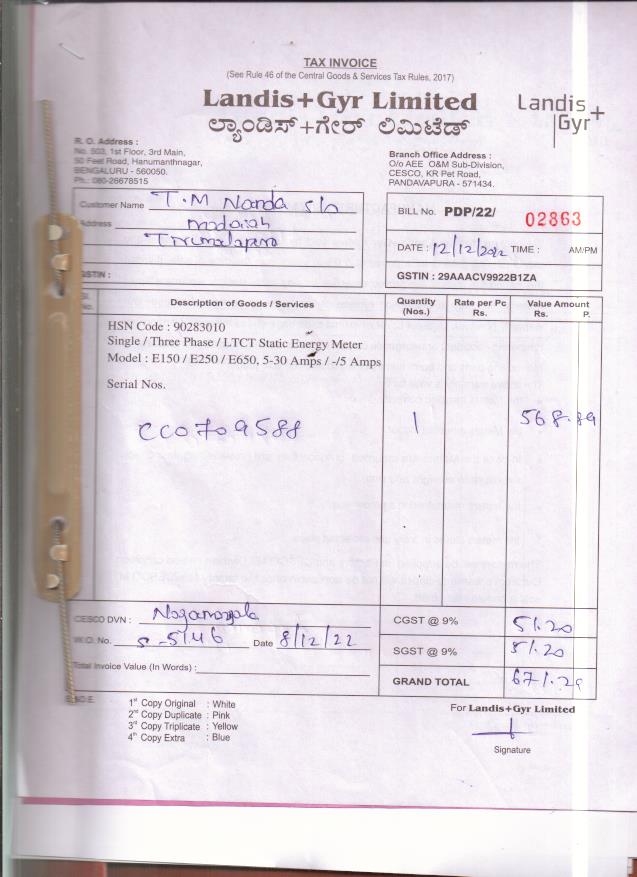 TAX INVOICE
(See Rule 46 of the Central Goods & Services Tax Rules, 2017)
Landis+Gyr Limited
ಲ್ಯಾಂಡಿಸ್+ಗೇರ್ ಲಿಮಿಟೆಡ್
Landis+
Gyr
R. O. Address :
No. 503, 1st Floor, 3rd Main,
50 Feet Road, Hanumanthnagar,
BENGALURU - 560050.
Ph.: 080-26678515
Branch Office Address :
O/o AEE O&M Sub-Division,
CESCO, KR Pet Road,
PANDAVAPURA - 571434.
Customer Name T.M Nanda S/o
Address madaiah
Tirumalapura
GSTIN :
BILL No. PDP/22/ 02863
DATE : 12/12/2022 TIME : AM/PM
GSTIN : 29AAACV9922B1ZA
Sl. No. Description of Goods / Services Quantity (Nos.) Rate per Pc Rs. Value Amount Rs. P.
HSN Code : 90283010
Single / Three Phase / LTCT Static Energy Meter
Model : E150 / E250 / E650, 5-30 Amps / -/5 Amps
Serial Nos.
CC0709588 1 568.89
CESCO DVN : Nagamangala
W.O. No. S-5146 Date 8/12/22
Total Invoice Value (In Words) :
CGST @ 9% 51.20
SGST @ 9% 51.20
GRAND TOTAL 671.29
E.& O.E.
1st Copy Original : White
2nd Copy Duplicate : Pink
3rd Copy Triplicate : Yellow
4th Copy Extra : Blue
For Landis+Gyr Limited
Signature